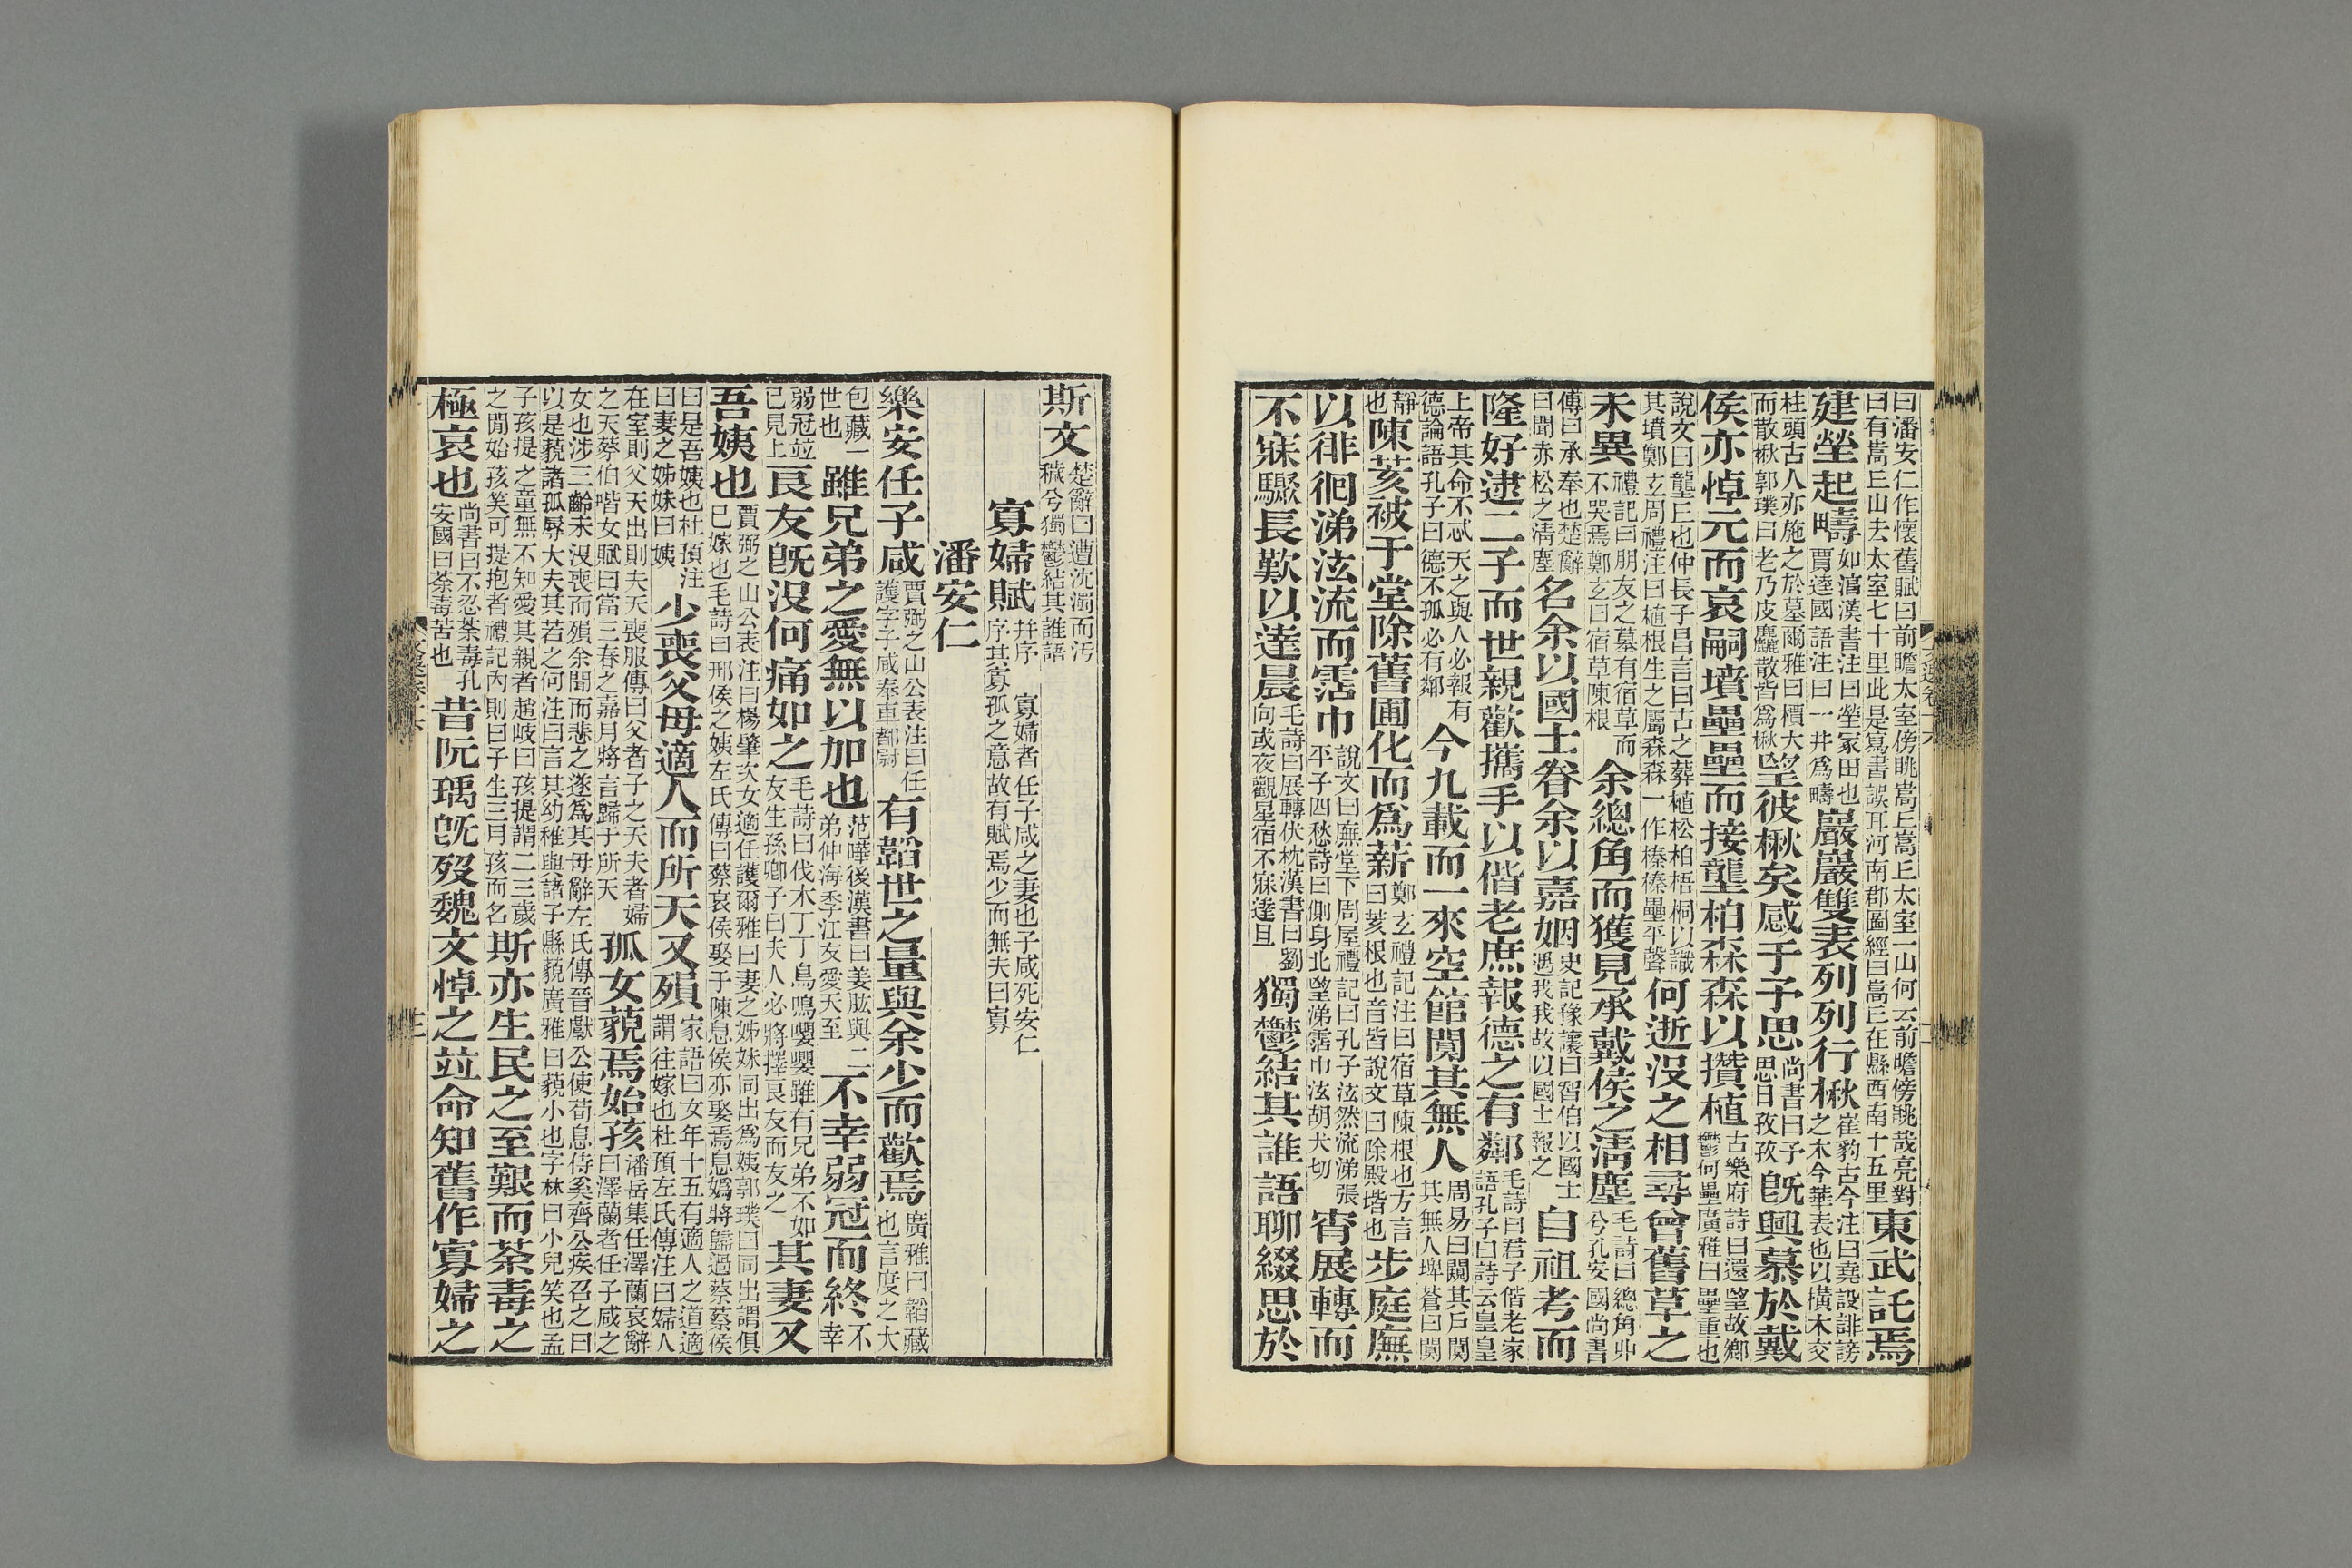 曰潘安仁作懷舊賦曰前瞻太室傍眺嵩丘嵩丘太室一山何云前瞻傍眺哉亮對
曰有嵩丘山去太室七十里此是寫書誤耳河南郡圖經曰嵩丘在縣西南十五里
東武託焉
建塋起疇
如淳漢書注曰塋冢田也
賈逵國語注曰一井爲疇
巖巖雙表列列行楸
崔豹古今注曰堯設誹謗
之木今華表也以橫木交
柱頭古人亦施之於墓爾雅曰檟大
而散楸郭璞曰老乃皮麤散皆爲楸
望彼楸矣感于予思
尚書曰予
思日孜孜
旣興慕於戴
侯亦悼元而哀嗣墳壘壘而接壟柏森森以攢植
古樂府詩曰還望故鄉
鬱何壘廣雅曰壘重也
說文曰壟丘也仲長子昌言曰古之葬植松柏梧桐以識
其墳鄭玄周禮注曰植根生之屬森森一作榛榛壘平聲
何逝沒之相尋曾舊草之
未異
禮記曰朋友之墓有宿草而
不哭焉鄭玄曰宿草陳根
余總角而獲見承戴侯之淸塵
毛詩曰總角丱
兮孔安國尚書
傳曰承奉也楚辭
曰聞赤松之淸塵
名余以國士眷余以嘉姻
史記豫讓曰智伯以國士
遇我我故以國士報之
自祖考而
隆好逮二子而世親歡攜手以偕老庶報德之有鄰
毛詩曰君子偕老家
語孔子曰詩云皇皇
上帝其命不忒天之與人必報有
德論語孔子曰德不孤必有鄰
今九載而一來空館闃其無人
周易曰闚其戶闃
其無人埤蒼曰闃
靜
也
陳荄被于堂除舊圃化而爲薪
鄭玄禮記注曰宿草陳根也方言
曰荄根也音皆說文曰除殿堦也
步庭廡
以徘徊涕泫流而霑巾
說文曰廡堂下周屋禮記曰孔子泫然流涕張
平子四愁詩曰側身北望涕霑巾泫胡犬切
宵展轉而
不寐驟長歎以達晨
毛詩曰展轉伏枕漢書曰劉
向或夜觀星宿不寐達旦
獨鬱結其誰語聊綴思於
斯文
楚辭曰遭沈濁而汚
穢兮獨鬱結其誰語
寡婦賦
幷序 寡婦者任子咸之妻也子咸死安仁
序其寡孤之意故有賦焉少而無夫曰寡
潘安仁
樂安任子咸
賈弼之山公表注曰任
護字子咸奉車都尉
有韜世之量與余少而歡焉
廣雅曰韜藏
也言度之大
包藏一
世也
雖兄弟之愛無以加也
范曄後漢書曰姜肱與二
弟仲海季江友愛天至
不幸弱冠而終
不
幸
弱冠竝
已見上
良友旣沒何痛如之
毛詩曰伐木丁丁鳥鳴嚶嚶雖有兄弟不如
友生孫卿子曰夫人必將擇良友而友之
其妻又
吾姨也
賈弼之山公表注曰楊肇次女適任護爾雅曰妻之姊妹同出爲姨郭璞曰同出謂俱
已嫁也毛詩曰邢侯之姨左氏傳曰蔡哀侯娶于陳息侯亦娶焉息嬀將歸過蔡蔡侯
曰是吾姨也杜預注
曰妻之姊妹曰姨
少喪父母適人而所天又殞
家語曰女年十五有適人之道適
謂往嫁也杜預左氏傳注曰婦人
在室則父天出則夫天喪服傳曰父者子之天夫者婦
之天蔡伯喈女賦曰當三春之嘉月將言歸于所天
孤女藐焉始孩
潘岳集任澤蘭哀辭
曰澤蘭者任子咸之
女也涉三齡未沒喪而殞余聞而悲之遂爲其母辭左氏傳晉獻公使荀息侍奚齊公疾召之曰
以是藐諸孤辱大夫其若之何注曰言其幼稚與諸子縣藐廣雅曰藐小也字林曰小兒笑也孟
子孩提之童無不知愛其親者趙岐曰孩提謂二三歲
之閒始孩笑可提抱者禮記內則曰子生三月孩而名
斯亦生民之至艱而荼毒之
極哀也
尚書曰不忍荼毒孔
安國曰荼毒苦也
昔阮瑀旣歿魏文悼之竝命知舊作寡婦之